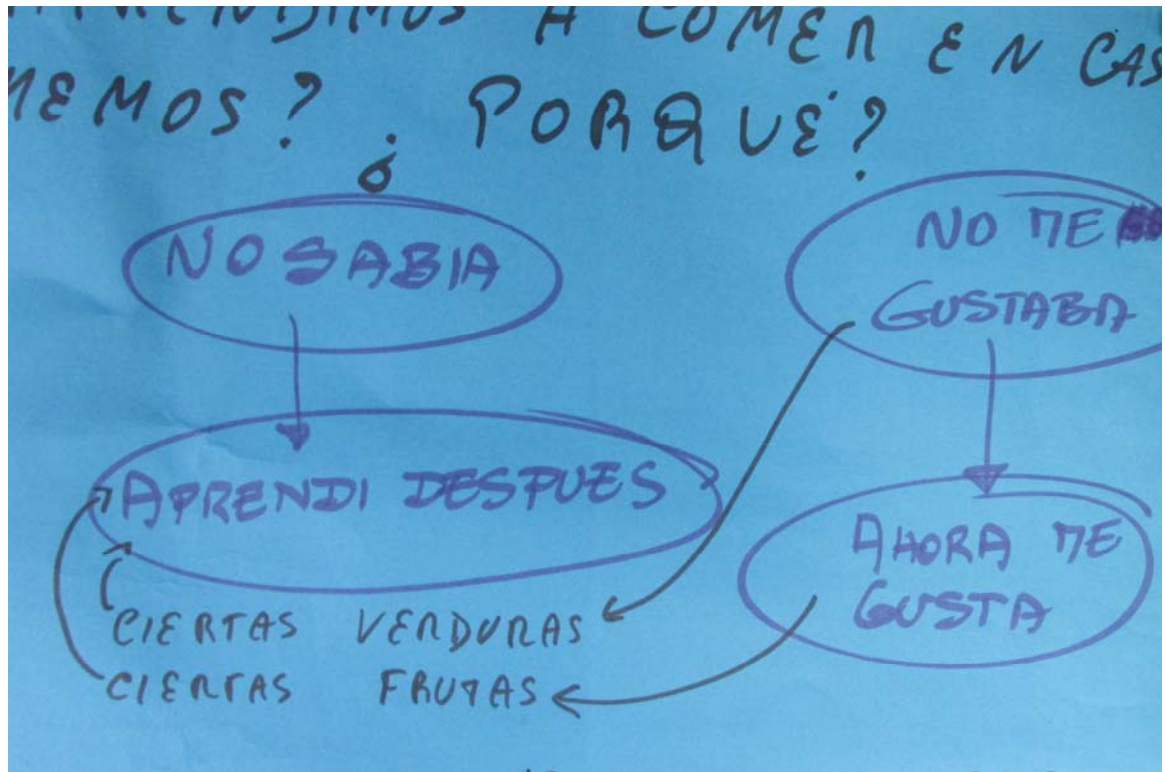 APRENDIMOS A COMER EN CAS
MEMOS? ¿PORQUÉ?
NO SABIA
NO ME
GUSTABA
APRENDI DESPUES
AHORA ME
GUSTA
CIERTAS VERDURAS
CIERTAS FRUTAS